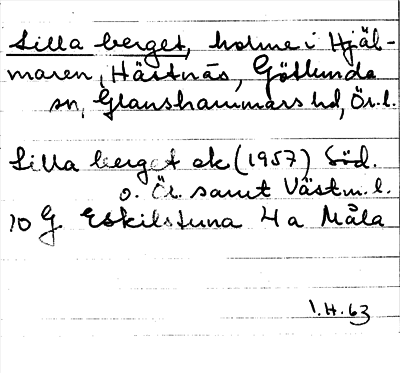 Lilla berget, holme i Hjäl-
maren, Hästnäs, Götlunda
sn, Glanshammars hd, Ör. l.
Lilla berget ek (1957) Söd.
o. Ör. samt Västm. l.
10 G Eskilstuna 4 a Måla
1.H.63